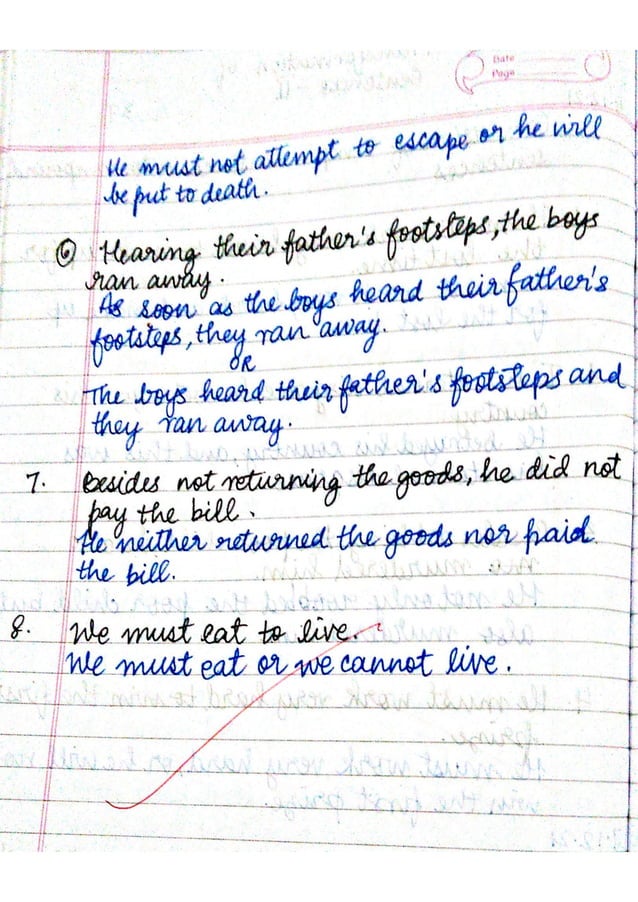 Date
Page
He must not attempt to escape or he will
be put to death.
⑥ Hearing their father's footsteps, the boys
ran away.
As soon as the boys heard their father's
footsteps, they ran away.
OR
The boys heard their father's footsteps and
they ran away.
7. Besides not returning the goods, he did not
pay the bill.
He neither returned the goods nor paid
the bill.
8. We must eat to live.
We must eat or we cannot live.